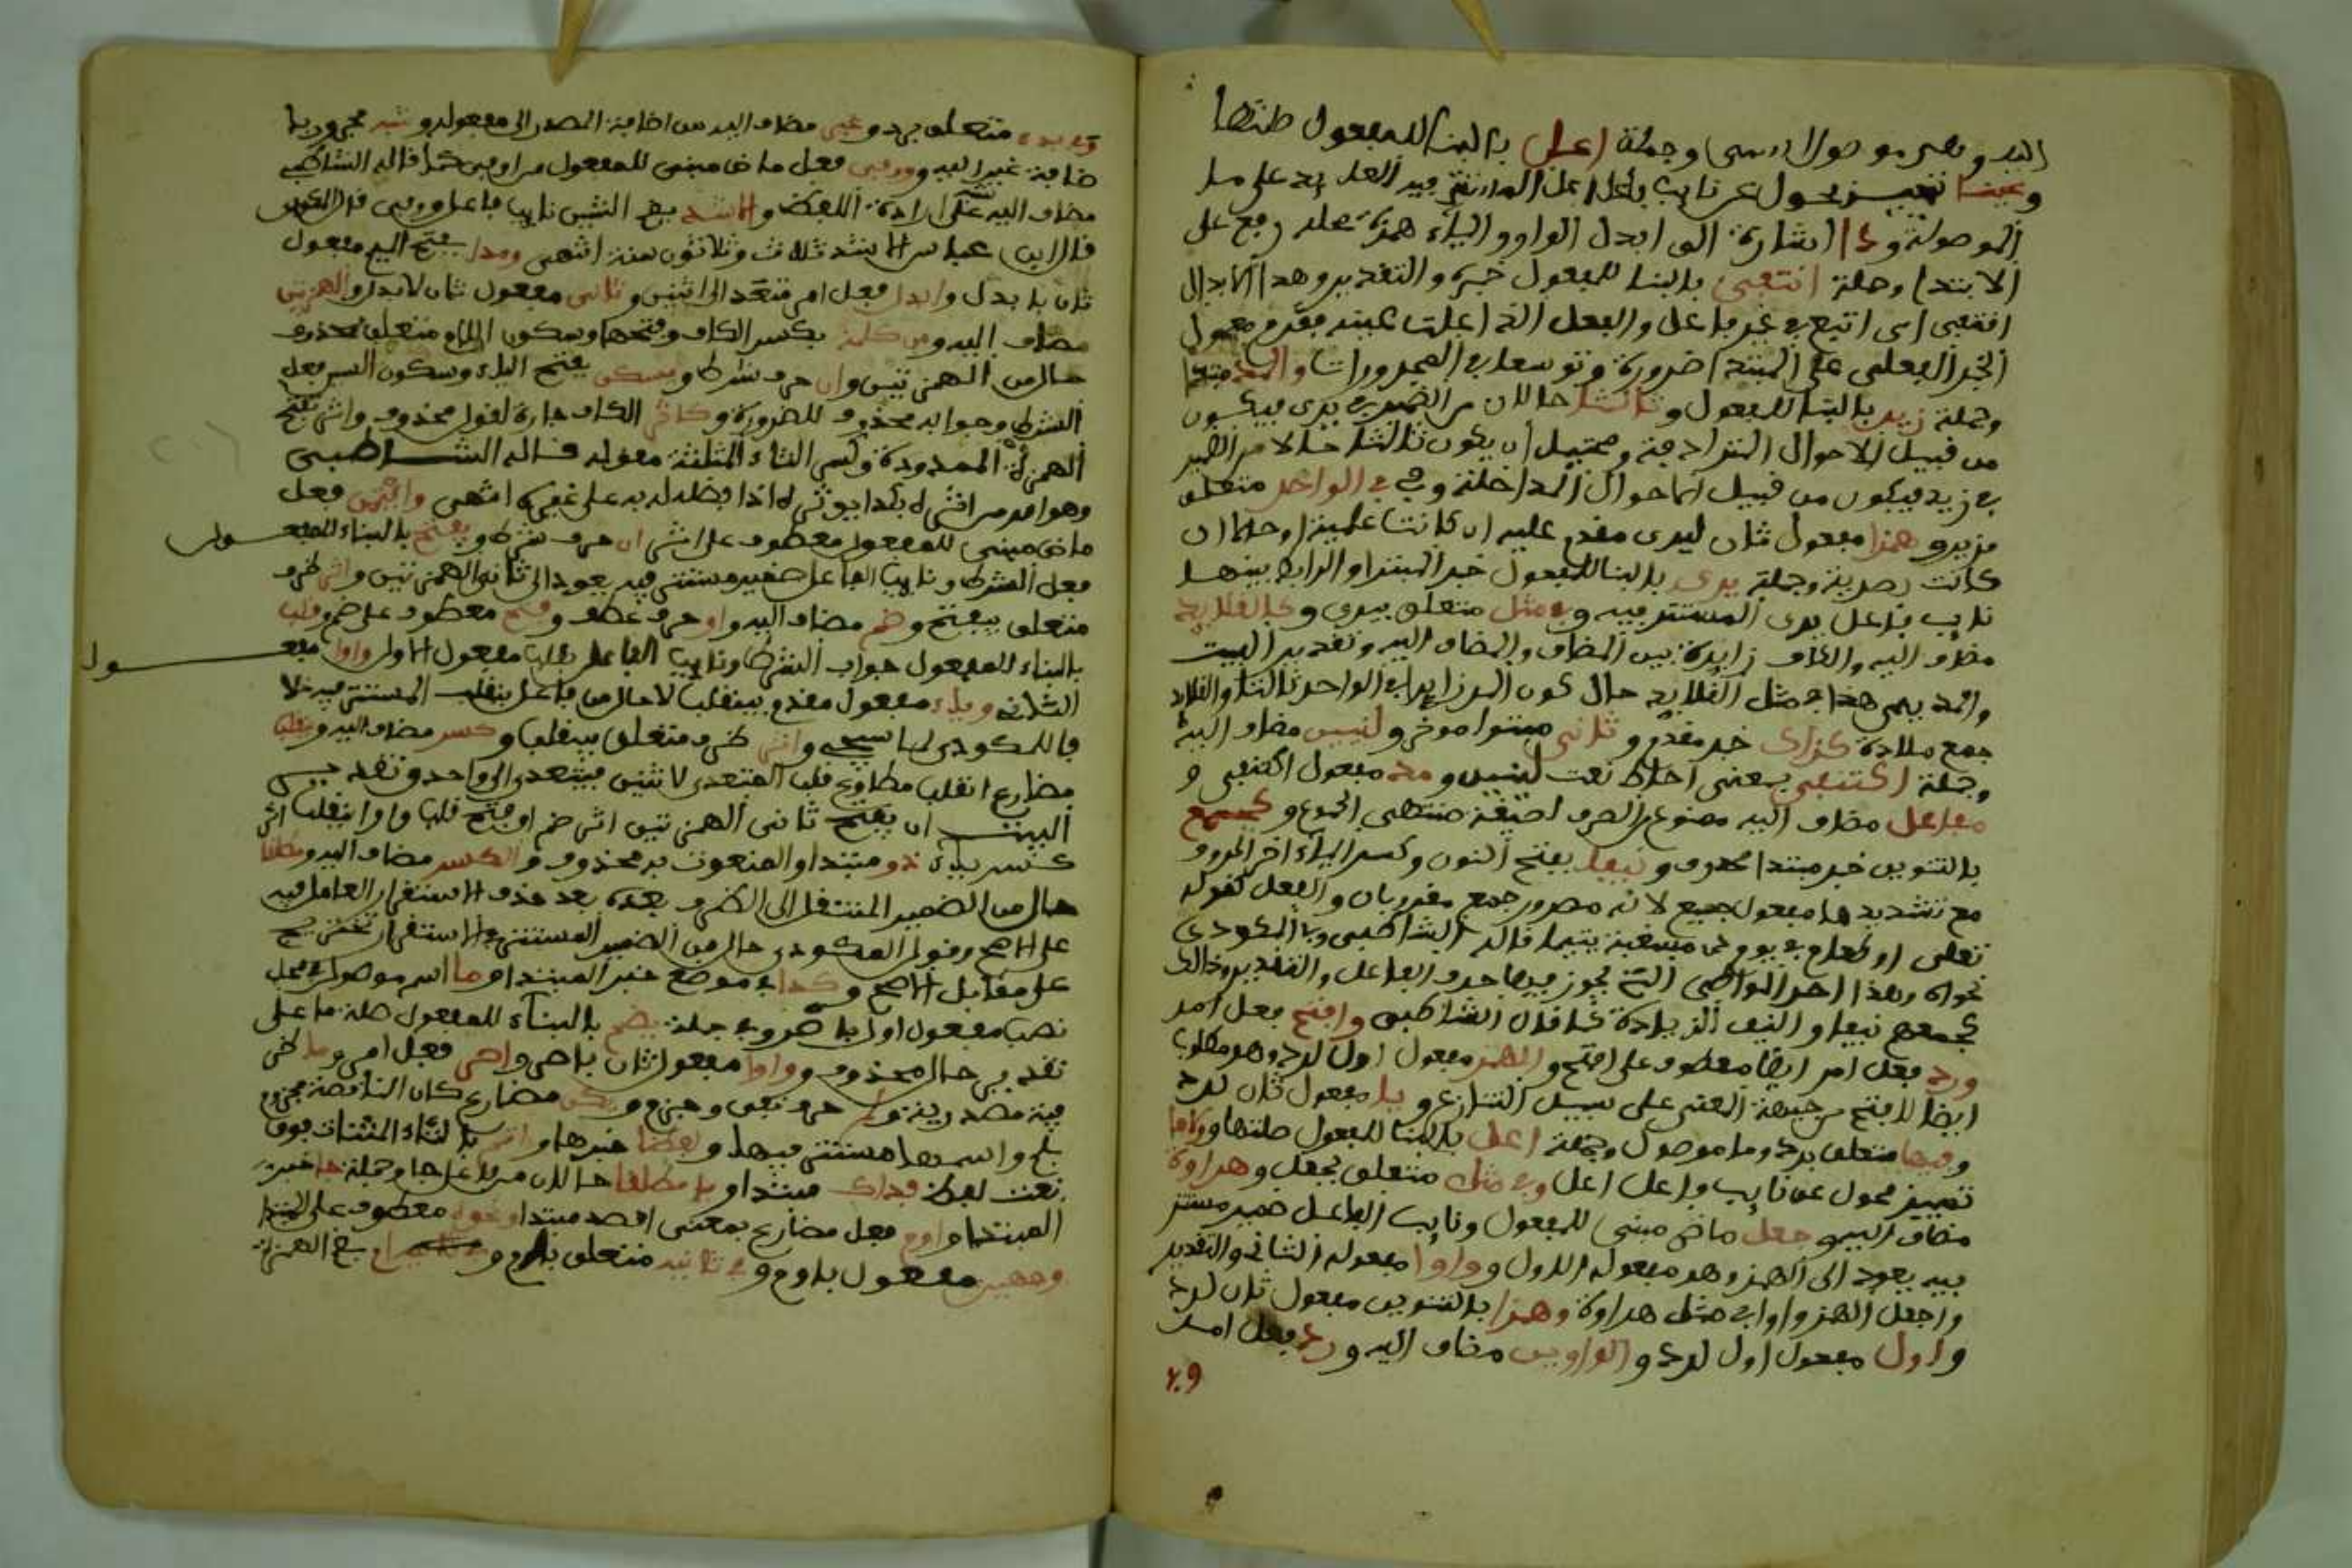 اليه وقصر موصول اسمي وجملة اعل بالبنا للمفعول صلتها
وعينا تمييز محول عن نايب فاعل اعل المستتر فيه العايد على ما
الموصولة وذا اشارة الى ابدال الواو والياء همزة محله رفع على
الابتدا وجملة اقتفي بالبنا للمفعول خبره والتقدير وهذا الابدال
اقتفي اي اتبع في فاعل والفعل الذي اعلت عينه فقدم معمول
الخبر الفعلي على المبتدا ضرورة وتوسعا في المجرورات والمد مبتدا
وجملة زيد بالبنا للمفعول وثالثا حالان من الضمير في يرى فيكون
من قبيل الاحوال المترادفة ويحتمل ان يكون ثالثا حالا من الضمير
في زيد فيكون من قبيل الاحوال المتداخلة وفي الواحد متعلق
بزيد وهمزا مفعول ثان ليرى مقدم عليه ان كانت علمية او حال ان
كانت بصرية وجملة يرى بالبنا للمفعول خبر المبتدا والرابط بينهما
نايب فاعل يرى المستتر فيه وفي مثل متعلق بيرى وكالقلايد
مضاف اليه والكاف زايدة بين المضاف والمضاف اليه وتقدير البيت
والمد يرى همزا في مثل القلايد حال كون المد زايدا في الواحد ثالثا والقلايد
جمع قلادة كذاك خبر مقدم وثاني مبتدا موخر ولينين مضاف اليه
وجملة اكتنفا بمعنى احاط نعت لينين ومد مفعول اكتنفا و
مفاعل مضاف اليه ممنوع من الصرف لصيغة منتهى الجموع وكجمع
بالتنوين خبر مبتدا محذوف ونيفا بفتح النون وكسر الياء اخر الحروف
مع تشديدها مفعول جمع لانه مصدر جمع مقدر بان والفعل كقوله
تعالى او اطعام في يوم ذي مسغبة يتيما قاله الشاطبي والمكودي
وهذا احد المواضع التي يجوز فيها حذف الفاعل والتقدير وذالك
كجمعهم نيفا والنيف الزيادة كذا قال الشاطبي وافتح فعل امر
ورد فعل امر ايضا معطوف على افتح والهمز مفعول اول لرد وهو مطلوب
ايضا لافتح من جهة المعنى على سبيل التنازع ويا مفعول ثان لرد
وفيما متعلق برد وما موصول وجملة اعل بالبنا للمفعول صلتها ولاما
تمييز محول عن نايب فاعل اعل وفي مثل متعلق بجعل وهراوة
مضاف اليه وجعل ماض مبني للمفعول ونايب الفاعل ضمير مستتر
فيه يعود الى الهمز وهو مفعوله الاول وواوا مفعوله الثاني والتقدير
واجعل الهمز واوا في مثل هراوة وهمزا بالتنوين مفعول ثان لرد
واول مفعول اول لرد والواوين مضاف اليه ورد فعل امر
وفي بدء متعلق برد وغير مضاف اليه من اضافة المصدر الى مفعوله وشبه مجرور با
ضافة غير اليه ووفي فعل ماض مبني للمفعول من اوفي كما قاله الشاطبي
مضاف اليه على ارادة اللفظ والاشد نايب فاعل ووفي
قال ابن عباس الاشد ثلاث وثلاثون سنة انتهى ومدا بفتح الميم مفعول
ثان بابدل وابدل فعل امر متعد الى اثنين وثاني مفعول ثان لابدل والهمزين
مضاف اليه ومن كلمة بكسر الكاف وفتحها وسكون اللام متعلق بمحذوف
حال من الهمزتين وان حرف شرط ويسكن بفتح الياء وسكون السين فعل
الشرط وجوابه محذوف للضرورة وكاثر الكاف جارة لقول محذوف واثر بفتح
الهمزة الممدودة وكسر الثاء المثلثة مقوله قاله الشاطبي
وهو امر من اثره بكذا يوثره اذا فضله به على غيره انتهى وائتمن فعل
ماض مبني للمفعول معطوف على اثر ان حرف شرط ويفتح بالبناء للمفعول
فعل الشرط ونايب الفاعل ضمير مستتر فيه يعود الى ثاني الهمزتين واثر ظرف
متعلق بيفتح وضم مضاف اليه واو حرف عطف وفتح معطوف على ضم وقلب
بالبناء للمفعول جواب الشرط ونايب الفاعل بقلب مفعول الاول وواوا مفعول
الثاني وياء مفعول مقدم بينقلب لا حال من فاعل ينقلب المستتر فيه خلا
فا للمكودي واثر ظرف متعلق بينقلب وكسر مضاف اليه وينقلب
مضارع انقلب مطاوع قلب المتعدي لاثنين فيتعدى الى واحد وتقدير
البيت ان يفتح ثاني الهمزتين اثر ضم او فتح قلب واوا وينقلب اثر
كسر ياء ذو مبتدا والمنعوت به محذوف والكسر مضاف اليه ومطلقا
حال من الضمير المنتقل الى الظرف بعده بعد حذف الاستقرار العامل فيه
على الاصح وقول المكودي حال من الضمير المستتر في الاستقرار تخريج
على مقابل الاصح وكذا في موضع خبر المبتدا وما اسم موصول في محل
نصب مفعول اول باصر وجملة يضم بالبناء للمفعول صلة ما على
تقدير حال محذوف وواوا مفعول ثان باصر واصر فعل امر وما ظر
فية مصدرية ولم حرف نفي وجزم ويكن مضارع كان الناقصة مجزوم
بلم واسمها مستتر فيها ولفظا خبرها واتم بالتاء المثناة فوق
نعت لفظ فذاك مبتدا ويا مطلقا حالان من فاعل جا وجملة جا خبر
المبتدا واوم فعل مضارع بمعنى اقصد مبتدا ونحوه معطوف على المبتدا
ووجهين مفعول باوم وفي ثانيه متعلق باوم